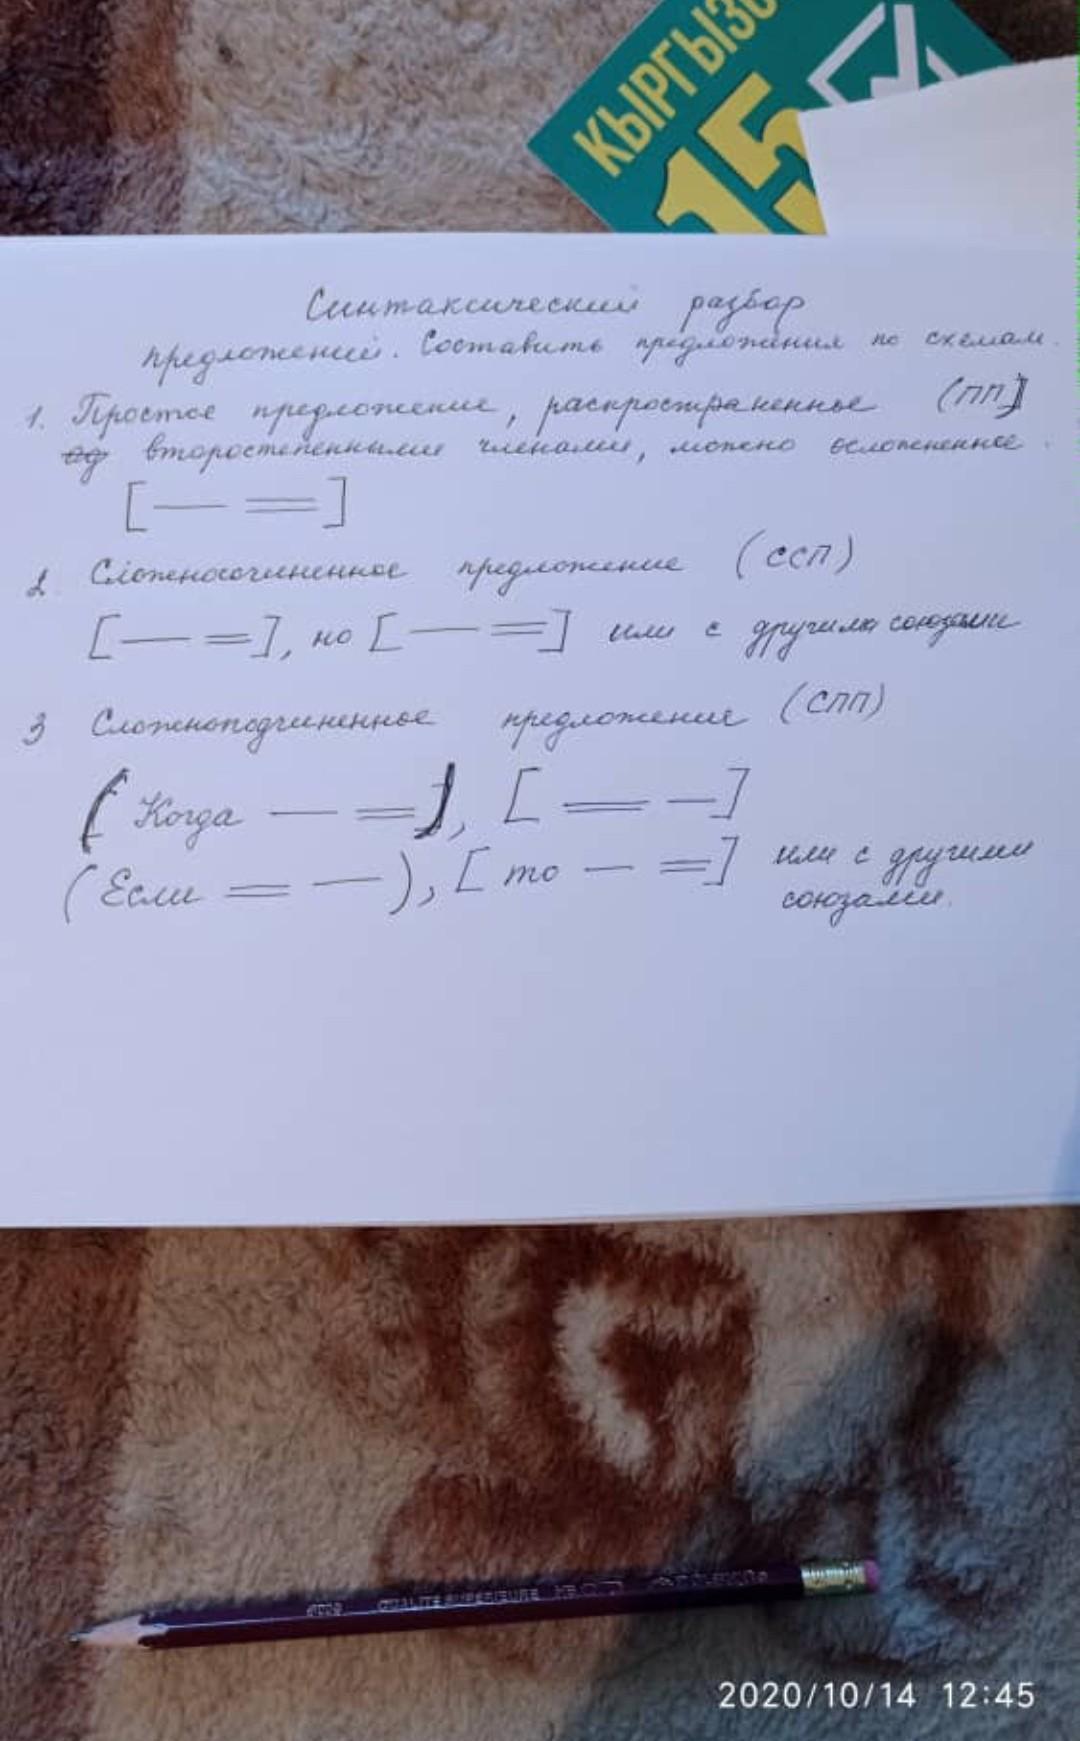 КЫРГЫЗС
15
Синтаксический разбор
предложений. Составить предложения по схемам.
1. Простое предложение, распространенное (ПП)
второстепенными членами, можно осложненное.
[— =]
2. Сложносочиненное предложение (ССП)
[— =], но [— =] или с другими союзами
3 Сложноподчиненное предложение (СПП)
(Когда — =), [= —]
(Если = —), [то — =] или с другими
союзами.
2020/10/14 12:45